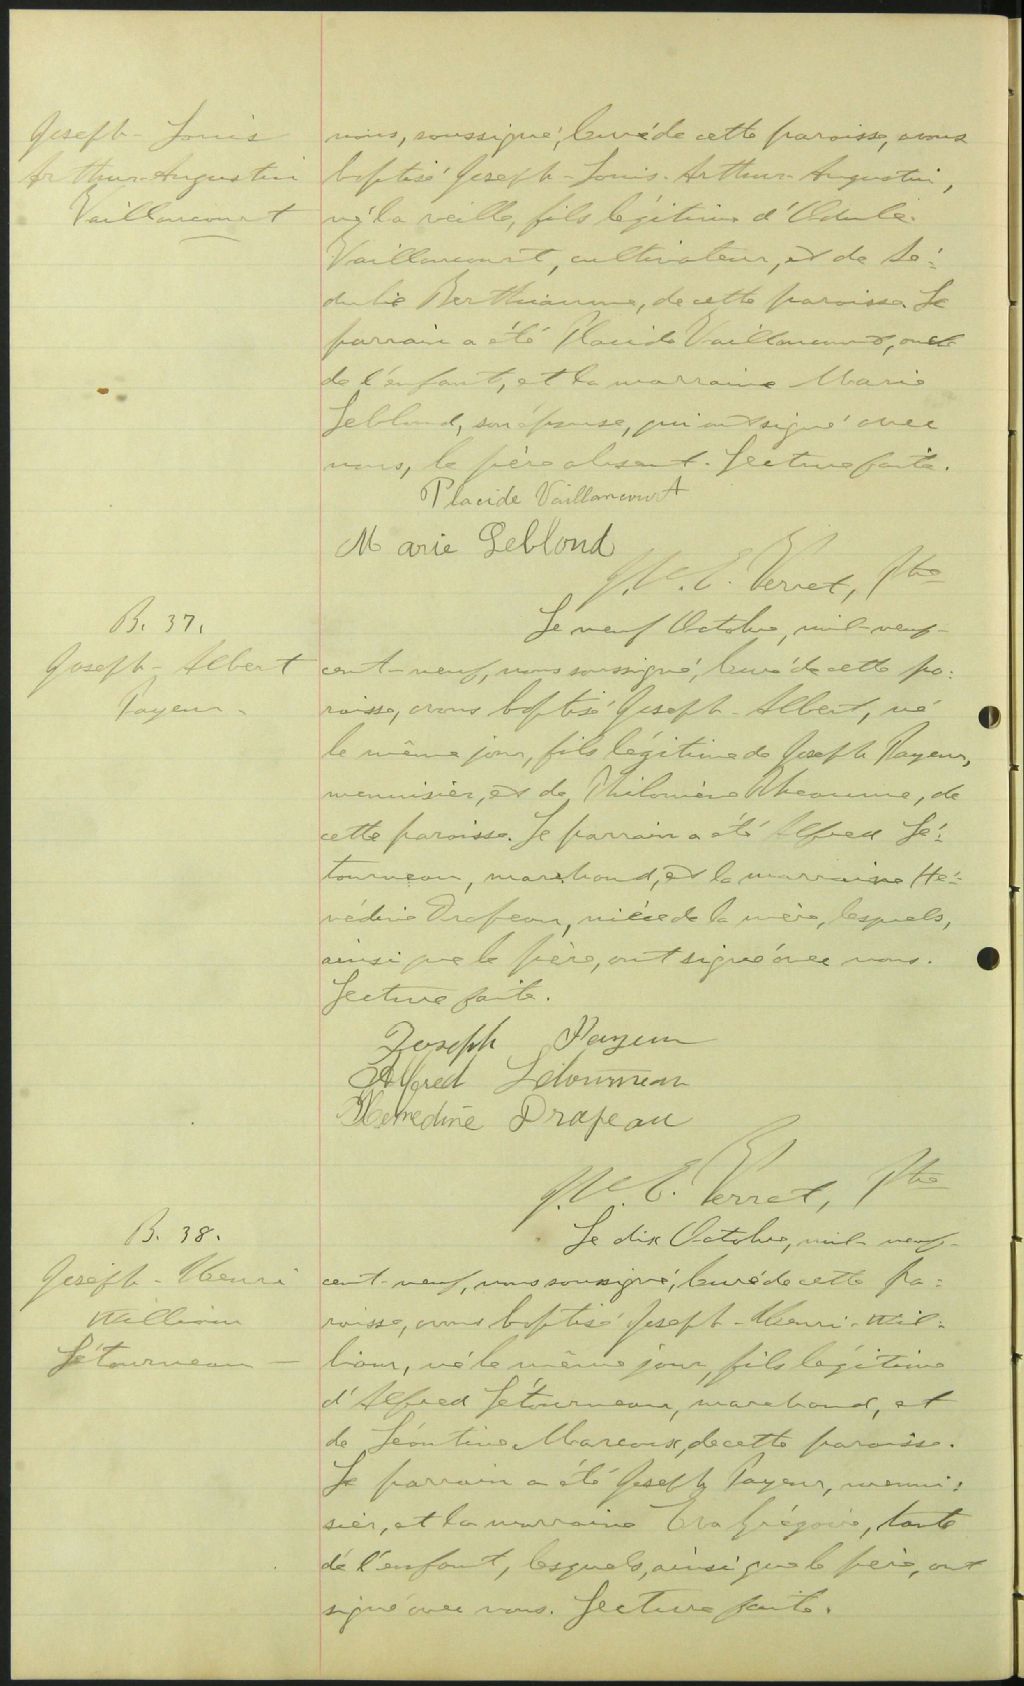 Joseph-Louis
Arthur-Augustin
Vaillancourt
nous, soussigné, Curé de cette paroisse, avons
baptisé Joseph-Louis-Arthur-Augustin,
né la veille, fils légitime d'Odule
Vaillancourt, cultivateur, et de Sé-
dulie Berthiaume, de cette paroisse. Le
parrain a été Placide Vaillancourt, oncle
de l'enfant, et la marraine Marie
Leblond, son épouse, qui ont signé avec
nous, le père absent. Lecture faite.
Placide Vaillancourt
Marie Leblond
J.V.E. Verret, Ptre
B. 37.
Joseph-Albert
Payeur.
Le neuf Octobre, mil-neuf-
cent-neuf, nous soussigné, Curé de cette pa-
roisse, avons baptisé Joseph-Albert, né
le même jour, fils légitime de Joseph Payeur,
menuisier, et de Philomène Rheaume, de
cette paroisse. Le parrain a été Alfred Lé-
tourneau, marchand, et la marraine Hé-
nédine Drapeau, nièce de la mère, lesquels,
ainsi que le père, ont signé avec nous.
Lecture faite.
Joseph Payeur
Alfred Létourneau
Henedine Drapeau
J.V.E. Verret, Ptre
B. 38.
Joseph-Henri
William
Létourneau —
Le dix Octobre, mil-neuf-
cent-neuf, nous soussigné, Curé de cette pa-
roisse, avons baptisé Joseph-Henri-Wil-
liam, né le même jour, fils légitime
d'Alfred Létourneau, marchand, et
de Léontine Marcoux, de cette paroisse.
Le parrain a été Joseph Payeur, menui-
sier, et la marraine Grégoire, tante
de l'enfant, lesquels, ainsi que le père, ont
signé avec nous. Lecture faite.